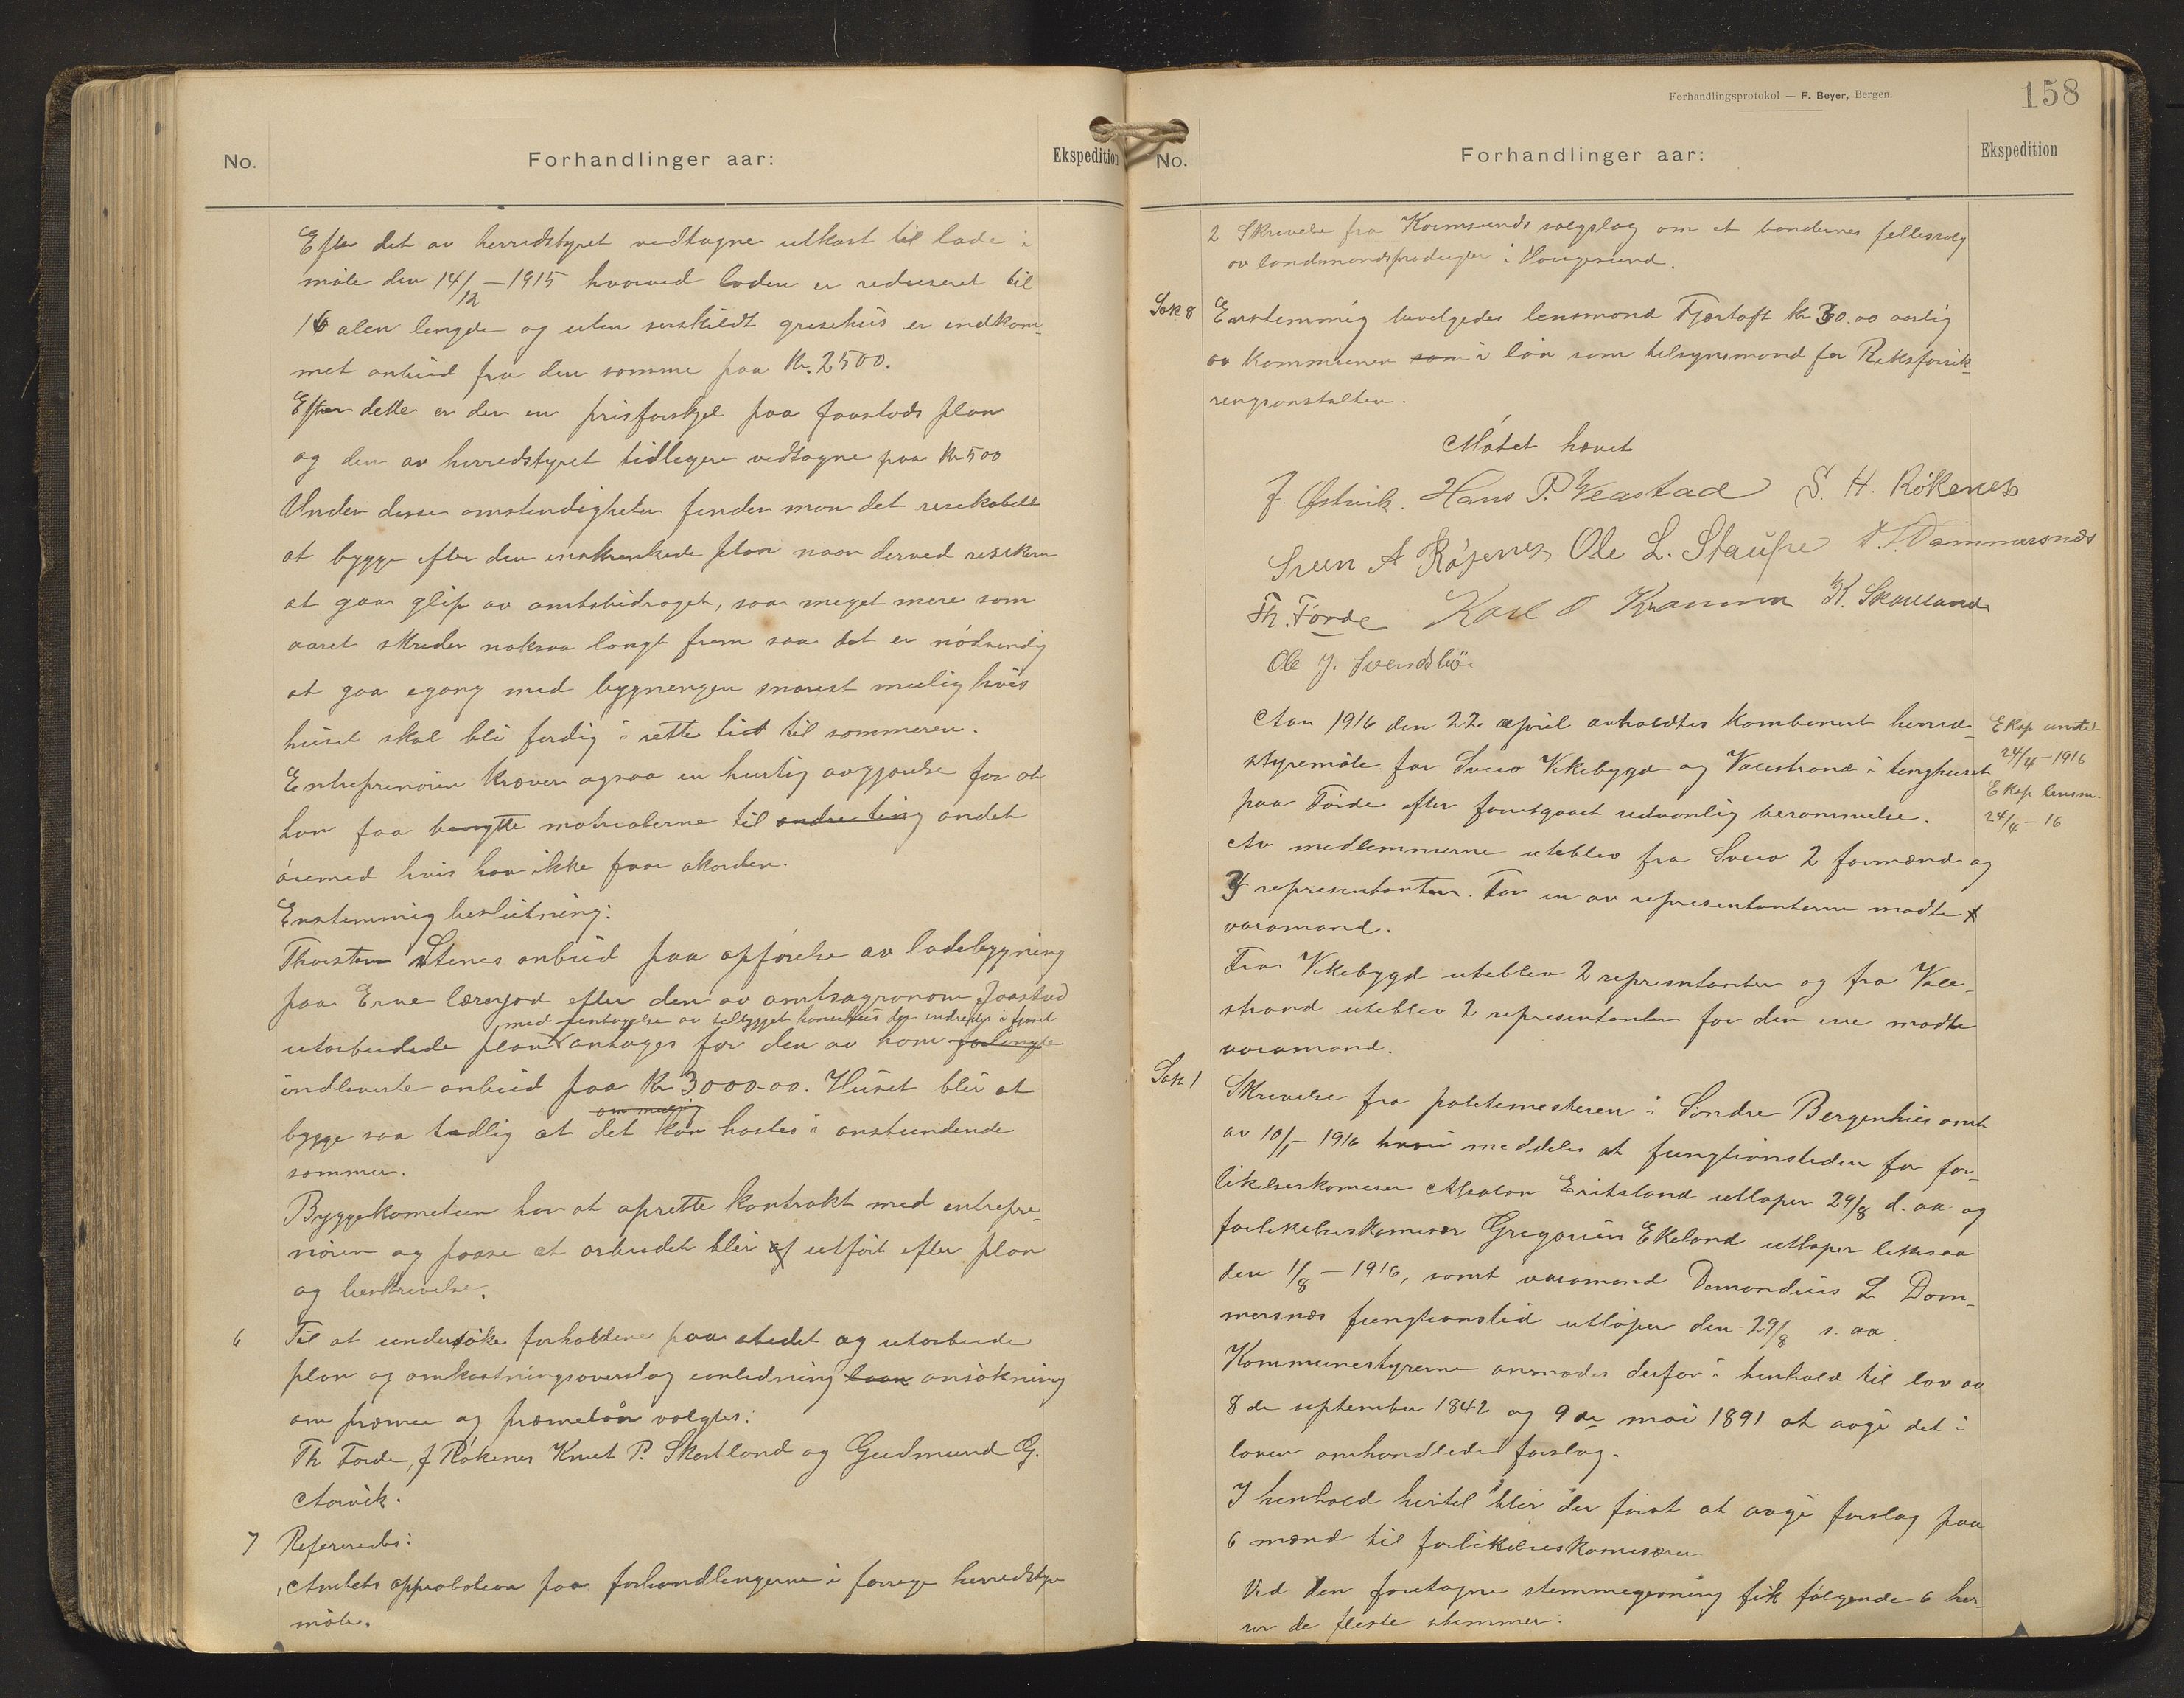 No.
Forhandlinger aar:
Ekspedition
Efter det av herredstyret vedtagne utkast til lade i
møte den 14/12 – 1915 hvorved laden er reduseret til
16 alen lengde og uten serskildt grisehus er indkom-
met anbud fra den somme paa kr. 2500.
Efter dette er der en prisforskjel paa Jaastads plan
og den av herredstyret tidligere vedtagne paa kr 500
Under disse omstendigheter finder man det resekabelt
at bygge efter den inskrenkede plan naar derved resekere
at gaa glip av amtsbidraget, saa meget mere som
aaret skrider noksaa langt frem saa det er nødvendig
at gaa egang med bygnengen snarest mulig hvis
huset skal bli ferdig i rette tid til sommeren.
Entreprenøren kræver ogsaa en hurtig avgjørelse for at
han faa benytte materialerne til andre ting andet
øiemed hvis han ikke faar akorden.
Enstemmig beslutning:
Thorsten Stenes anbud paa opførelse av ladebygning
paa Erve lærerjord efter den av amtsagronom Jaastad
med fentagelse av telbygget honsehus der indredes i fjøset
utarbeidede plan antages for den av ham forlangte
indleverte anbud paa kr 3000-00. Huset blir at
om mulig
bygge saa tidlig at det kan høstes i anstundende
sommer.
Byggekometeen har at oprette kontrakt med entrepre-
nøren og paase at arbeidet blir af utført efter plan
og beskrivelse.
6 Til at undersøke forholdene paa stedet og utarbeide
plan og omkostningsoverslag eanledning laan ansøkning
om præmie og præmelaan valgtes:
Th Førde, J Røkenes Knut P. Skartland og Gudmund G.
Aarvik.
7 Refereredes:
1 Amtets approbation paa forhandlingerne i forrige herredstyre
møte.
Forhandlingsprotokol — F. Beyer, Bergen.
158
No.
Forhandlinger aar:
Ekspedition
2 Skrivelse fra Karmsunds salgslag om et bøndernes fellessalg
av landmandsprodugter i Haugesund.
Sak 8 Enstemmig bevelgedes lensmand Fjærtoft kr 30.00 aarlig
av kommunen som i løn som telsynsmand for Riksforsik-
rengsanstalten.
Møtet hævet
J. Østvik. Hans P. Veastad S. H. Røkenes
Sveen A Røkenes Ole L. Staupe D. Dammersnes
Th. Førde Karl O Kvamme K. Skartland
Ole J. Svendsbøe
Aar 1916 den 22 april avholdtes kombenert herred-
styremøte for Sveio Vikebygd og Valestrand i tenghuset
paa Førde efter forutgaaet sedvanlig berammelse.
Ekap amtet
24/4 – 1916
Ekap lensm.
24/4 – 16
Av medlemmerne uteblev fra Sveio 2 formænd og
4 representanter. For en av representanterne møtte
varamand.
Fra Vikebygd uteblev 2 representanter og fra Vale-
strand uteblev 2 representanter for den ene møtte
varamand.
Sak 1 Skrivelse fra politimesteren i Søndre Bergenhus amt
av 10/1 – 1916 hvori meddeles at fungtionsteden for for-
likelseskomeser Absalon Eritsland utløper 29/8 d. aa og
forlikelseskomeser Gregorius Ekeland utløper lekesaa
den 1/8 – 1916, samt varamand Demandius L Dom-
mersnes fungtionstid utløper den 29/8 s. aa.
Kommunestyrerne anmodes derfor i henhold til lov av
8de september 1842 og 9de mai 1891 at avgi det i
loven omhandlede forslag.
I henhold hertil blir der først at avgi forslag paa
6 mænd til forlikelseskomesærer
Ved den foretagne stemmegevning fik følgende 6 her-
rer de fleste stemmer: